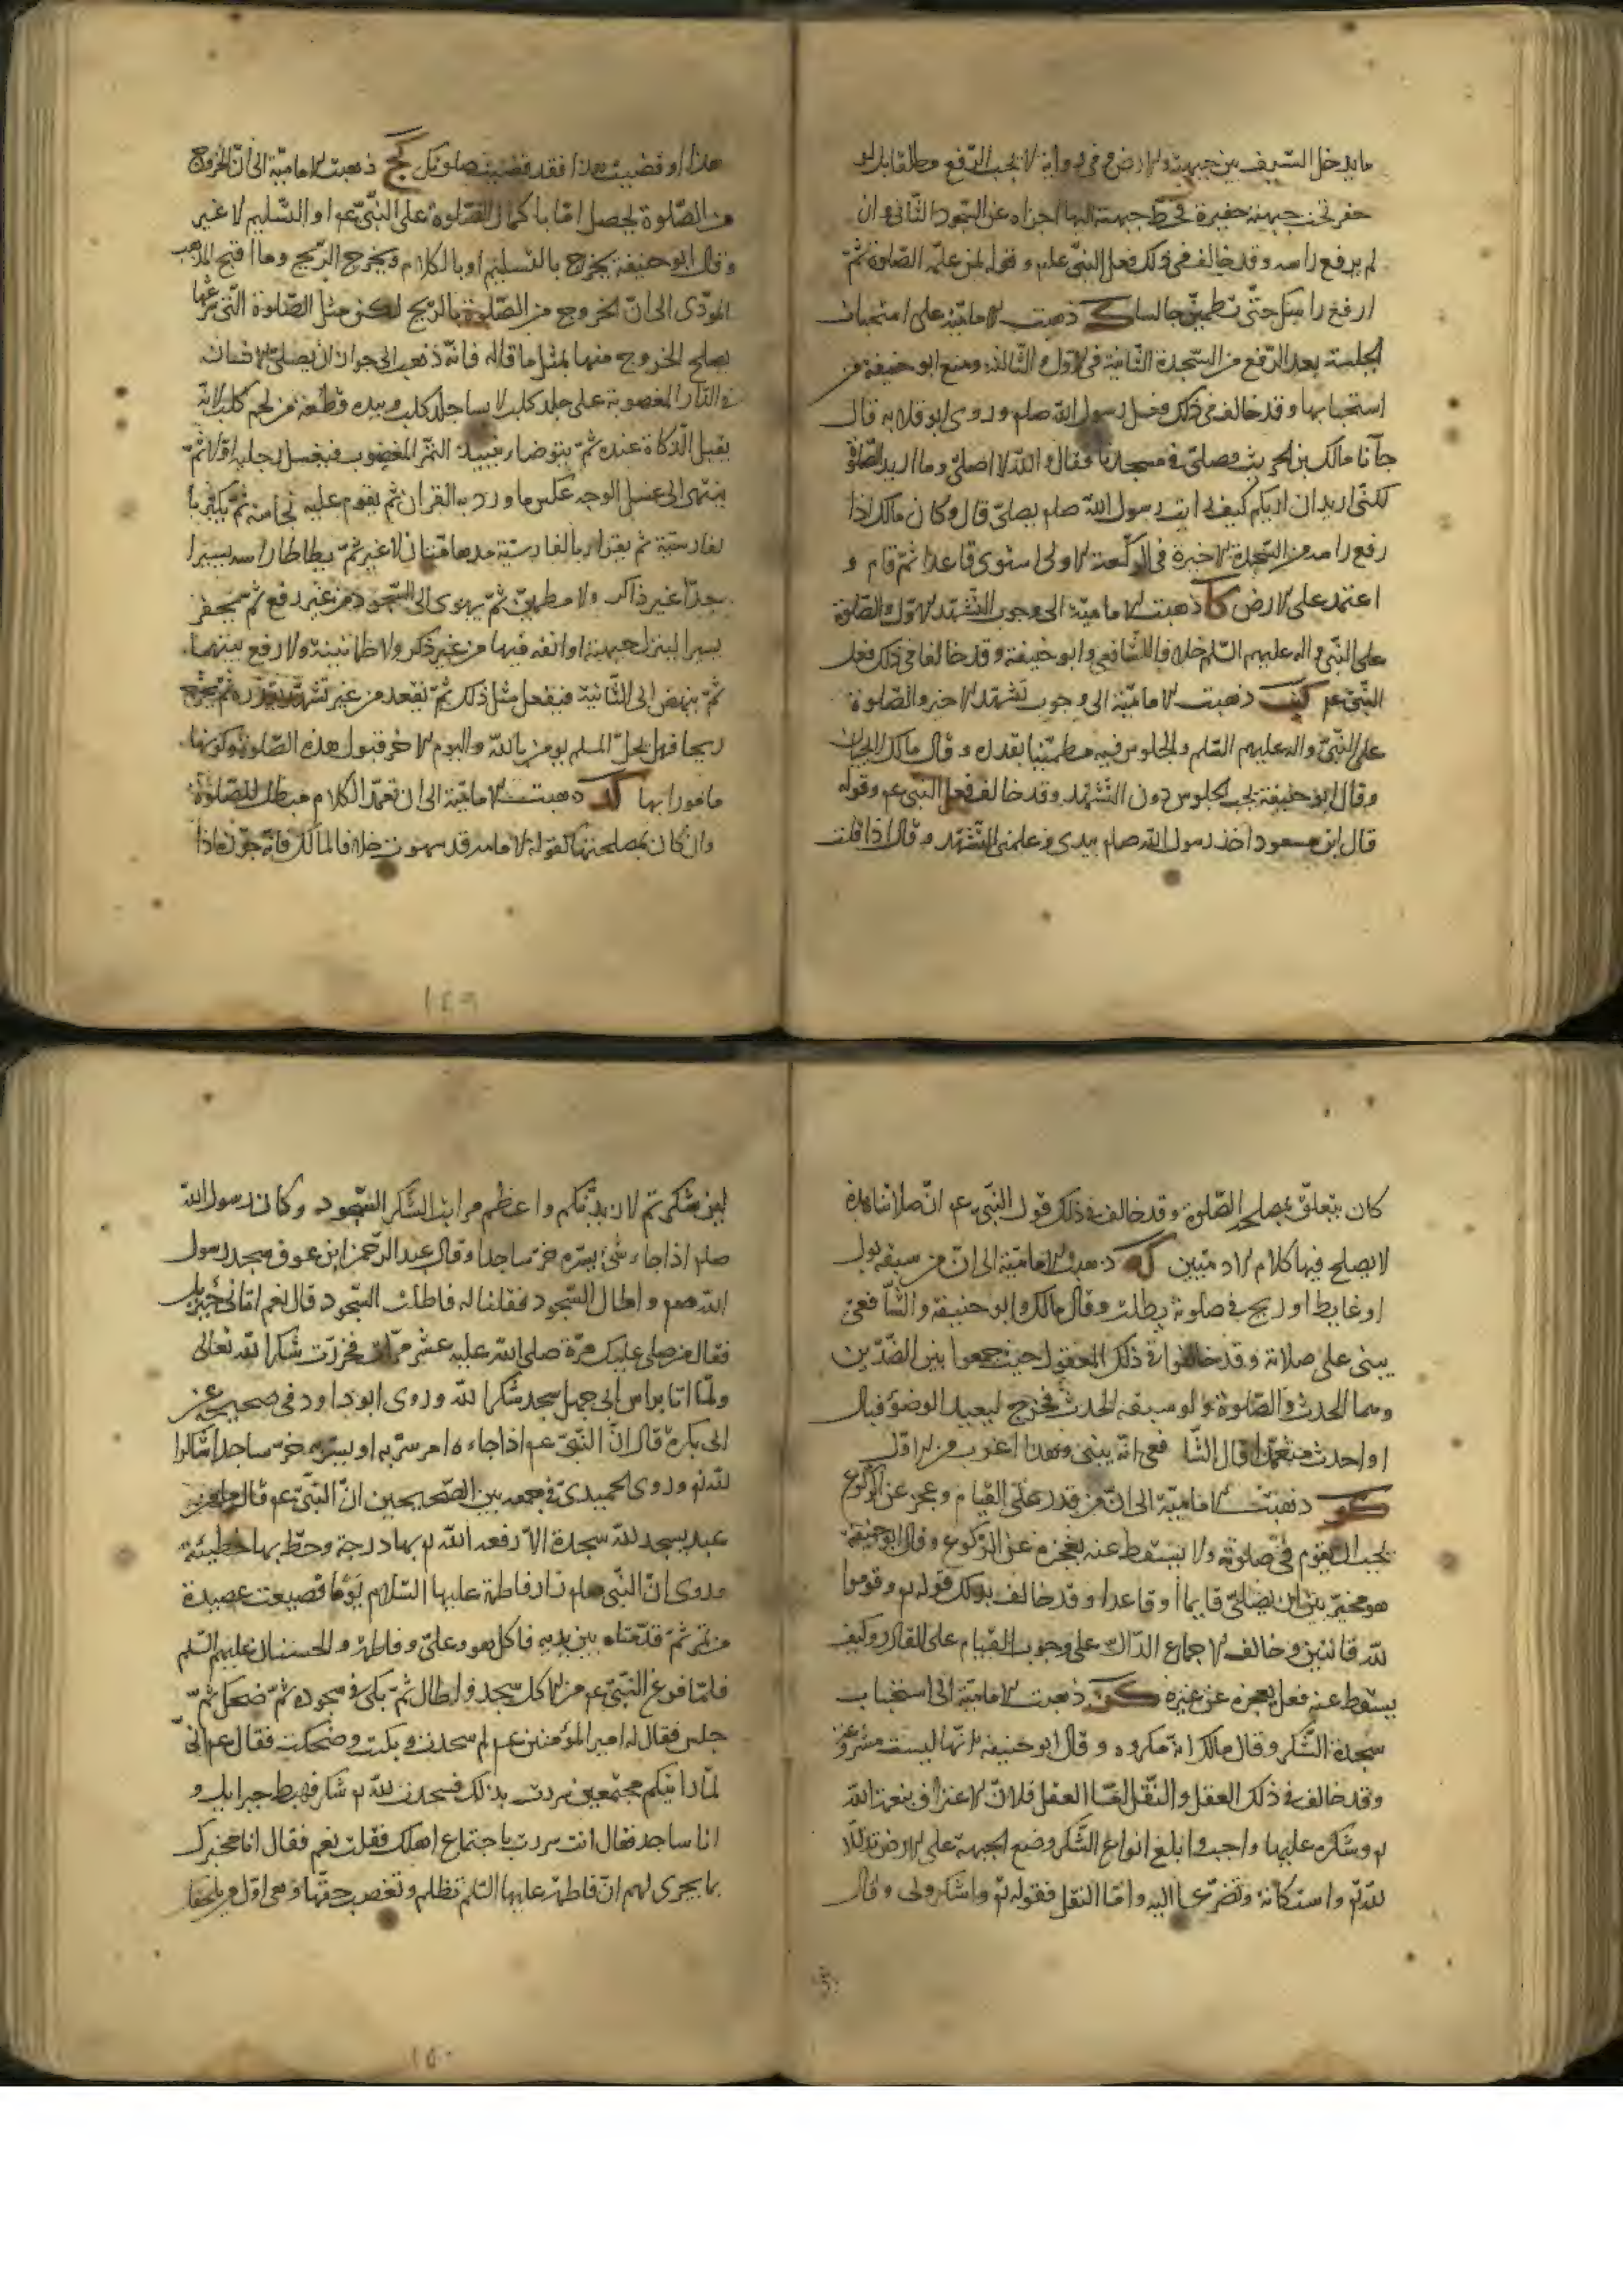 ما يدخل السيف بين جبهته والارض وفي رواية لا يجب الرفع مطلقا بل لو
حفر تحت جبهته حفيرة فحط جبهته اليها اجزاه عن السجود الثاني وان
لم يرفع راسه وقد خالف في ذلك فعل النبي عليه و قوله لمن علمه الصلوة ثم
ارفع راسك حتى تطمئن جالسا ك ذهبت الامامية على استحباب
الجلسة بعد الرفع من السجدة الثانية في الاولى والثالثة ومنع ابو حنيفة من
استحبابها وقد خالف في ذلك فعل رسول الله صلم وروى ابو قلابه قال
جآنا مالك بن الحريث وصلى في مسجدنا فقال والله لا اصلي وما اريد الصلوة
لكني اريد ان اريكم كيف رايت رسول الله صلم يصلي قال وكان مالك اذا
رفع راسه من السجدة الاخيرة في الركعة الاولى استوى قاعدا ثم قام و
اعتمد على الارض كا ذهبت الامامية الى وجوب التشهد الاول والصلوة
على النبي واله عليهم السلم خلافا للشافعي وابو حنيفة وقد خالفا في ذلك فعل
النبي عم كب ذهبت الامامية الى وجوب تشهد الاخير والصلوة
على النبي واله عليهم السلم والجلوس فيه مطمئنا بقدره وقال مالك لا يجبان
وقال ابو حنيفة يجب الجلوس دون التشهد وقد خالف فعل النبي عم وقوله
قال ابن مسعود اخذ رسول الله صلم بيدي وعلمني التشهد وقال اذا قلت
هذا او قضيت هذا فقد قضيت صلوتك كج ذهبت الامامية الى ان الخروج
من الصلوة يحصل اما باكمال الصلوة على النبي عم او التسليم لا غير
وقال ابو حنيفة يخرج بالتسليم او بالكلام وبخروج الريح وما اقبح المذهب
المؤدى الى ان الخروج من الصلوة بالريح لكن مثل الصلوة التي شرعها
يصلح الخروج منها بمثل ما قاله فانه ذهب الى جواز ان يصلي الانسان
في الدار المغصوبة على جلد كلب لابسا جلد كلب وبيده قطعة من لحم كلب لانه
يقبل الذكاة عنده ثم يتوضا بنبيذ التمر المغصوب فيغسل رجليه اولا ثم
ينتهى الى غسل الوجه عكس ما ورد به القران ثم يقوم عليه نجاسة ثم يكبر با
لفارسية ثم يقرا بالفارسية مدهامتان لا غير ثم يطاطا راسه يسيرا
جدا غير ذاكر ولا مطمئن ثم يهوى الى السجود من غير رفع ثم يحفر
يسيرا لينزل جبهته او انفه فيها من غير ذكر ولا طمانينة ولا رفع بينهما
ثم ينهض الى الثانية فيفعل مثل ذلك ثم يقعد من غير تشهد بقدره ثم يخرج
ريحا فهل يحل لمسلم يومن بالله واليوم الاخر قبول هذه الصلوة وكونها
مامورا بها كد ذهبت الامامية الى ان تعمد الكلام مبطل للصلوة
وان كان لمصلحتها كقوله لامامه قد سهوت خلافا لمالك فانه جوزه اذا
كان يتعلق بمصلحة الصلوة وقد خالف في ذلك قول النبي عم ان صلاتنا هذه
لا يصلح فيها كلام الادميين كه ذهبت الامامية الى ان من سبقه بول
او غايط او ريح في صلوته بطلت وقال مالك وابو حنيفة والشافعي
يبنى على صلاته وقد خالفوا في ذلك المعقول حيث جمعوا بين الضدين
وهما الحدث والصلوة ولو سبقه الحدث فخرج ليعيد الوضوء فبال
او احدث متعمدا قال الشافعي انه يبني وهذا اغرب من الاول
كو ذهبت الامامية الى ان من قدر على القيام وعجز عن الركوع
يجب ان يقوم في صلوته ولا يسقط عنه بعجزه عن الركوع وقال ابو حنيفة
هو مخير بين ان يصلي قايما او قاعدا وقد خالف بذلك قوله تع وقوموا
لله قانتين وخالف الاجماع الدال على وجوب القيام على القادر وكيف
يسقط عنه فعل بعجزه عن غيره كز ذهبت الامامية الى استحباب
سجدة الشكر وقال مالك انه مكروه وقال ابو حنيفة انها ليست مشروعة
وقد خالف في ذلك العقل والنقل اما العقل فلان الاعتراف بنعمة الله
تع وشكره عليها واجب وابلغ انواع الشكر وضع الجبهة على الارض تذللا
لله تع واستكانة وتضرعا اليه واما النقل فقوله تع واشكروا لي وقال
لئن شكرتم لازيدنكم واعظم مراتب الشكر السجود وكان رسول الله
صلم اذا جاءه شئ يسره خر ساجدا وقال عبد الرحمن ابن عوف سجد رسول
الله صلم واطال السجود فقلنا له فاطلت السجود قال نعم اتاني جبريل
فقال من صلى عليك مرة صلى الله عليه عشر مرات فخررت شكرا لله تعالى
ولما اتا براس ابى جهل سجد شكرا لله وروى ابو داود في صحيحه عن
ابى بكرة قال ان النبي عم اذا جاءه امر سر به او يسره خر ساجدا شاكرا
لله تع وروى الحميدي في جمعه بين الصحيحين ان النبي عم قال ما من
عبد يسجد لله سجدة الا رفعه الله تع بها درجة وحط بها خطيئة
وروى ان النبي صلم زار فاطمة عليها السلام يوما فصيعت عصيدة
من تمر ثم قدمتاه بين يديه فاكل هو وعلي وفاطمة والحسنان عليهم السلم
فلما فرغ النبي عم من الاكل سجد واطال ثم بكى في سجوده ثم ضحك ثم
جلس فقال له امير المؤمنين عم لم سجدت وبكيت وضحكت فقال عم انى
لما رايتكم مجتمعين سررت بذلك فسجدت لله تع شكرا فهبط جبرايل و
انا ساجد فقال انت سررت باجتماع اهلك فقلت نعم فقال انا مخبرك
بما يجرى لهم ان فاطمة عليها السلم تظلم وتغصب حقها وهي اول من يلحقك